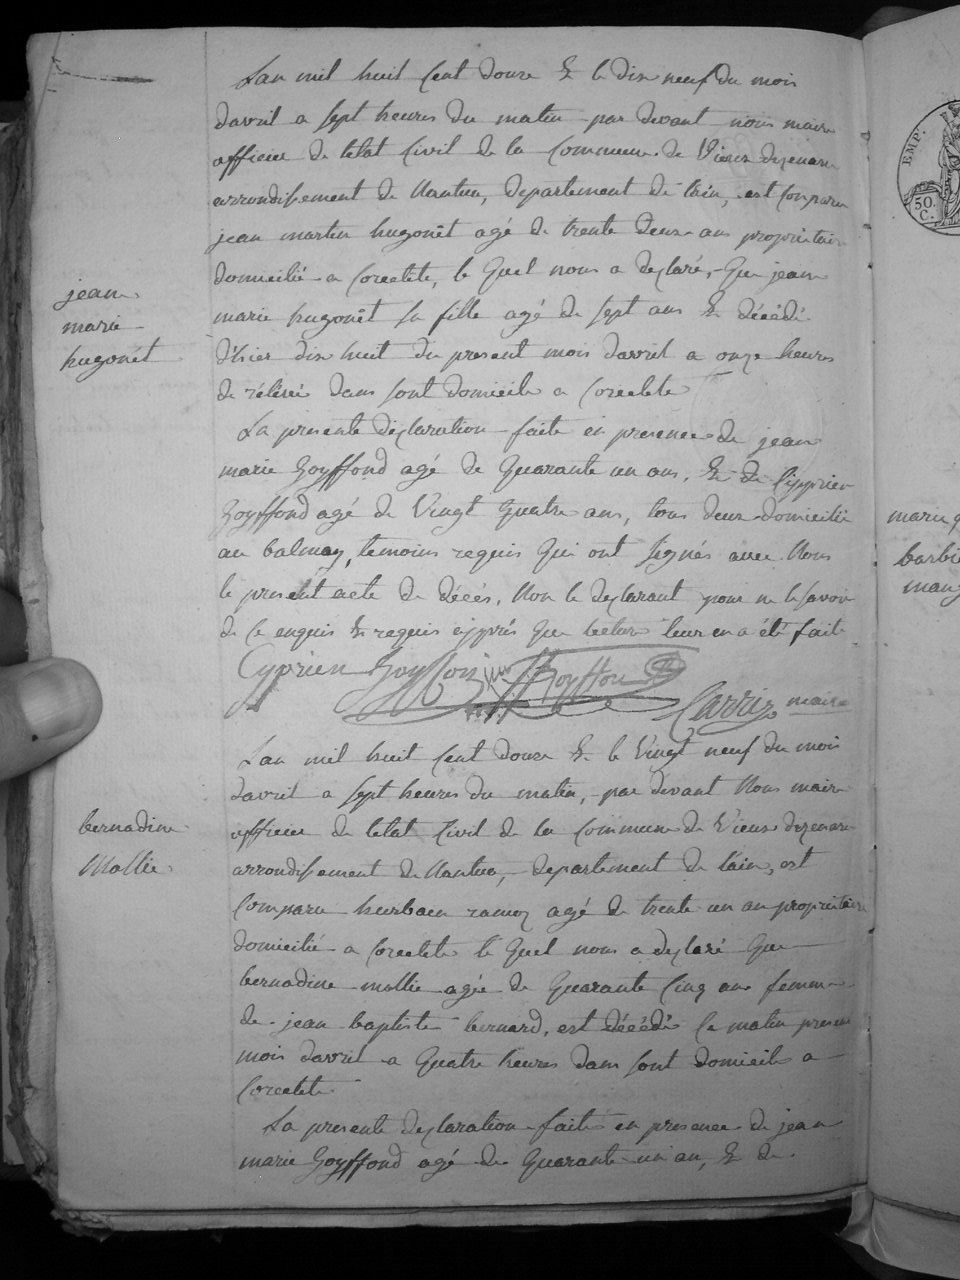 Lan mil huit Cent douze & le dix neuf du mois
davril a sept heures du matin par devant nous maire
officier de letat Civil de la Commune de Vieux dizenave
arrondissement de Nantua, departement de lain, est Comparu
jean martin hugonet agé de trente deux ans propriétaire
domicilié a Corcelete, le quel nous a declaré, que jean
marie hugonet sa fille agé de sept ans & décédé
d'hier dix huit du present mois davril a onze heures
de rélévé dans sont domicile a Corcelete
jean
marie
hugonet
La presente déclaration faite en presence de jean
marie Goyffond agé de quarante un ans, & de Cipprien
Goyffond agé de Vingt quatre ans, tous deux domicilié
au balmay, temoins requis qui ont signés avec Nous
le present acte de décés, Non le declarant pour ne le savoir
de ce enquis & requis apprés que lecture leur en a été faite
Cyprien Goyffon Goyffon
Carrier maire
Lan mil huit Cent douze & le Vingt neuf du mois
davril a sept heures du matin, par devant Nous maire
officier de letat Civil de la Commune de Vieux dizenave
arrondissement de Nantua, departement de lain, est
Comparu hurbain ramoz agé de trente un an propriétaire
domicilié a Corcelete le quel nous a declaré que
bernadine mollie agée de quarante Cinq ans femme
de jean baptiste bernard, est décédé Ce matin present
mois davril a quatre heures dans sont domicile a
Corcelete
bernadine
Mollie
La presente declaration faite en presence de jean
marie Goyffond agé de quarante un an, & de
EMP.
50
C.
marie
barbie